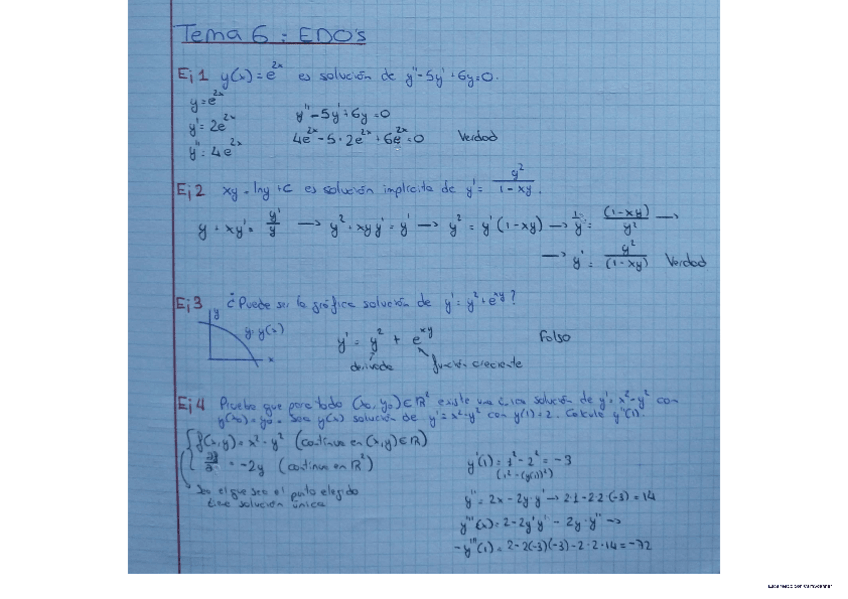 Tema 6: EDO's
Ej1 y(x) = e^2x es solución de y''-5y'+6y=0.
y=e^2x
y'=2e^2x y''-5y'+6y=0
y''=4e^2x 4e^2x-5·2e^2x+6e^2x=0 Verdad
Ej2 xy = lny + C es solución implícita de y' = y²/(1-xy).
y + xy' = y'/y → y² + xyy' = y' → y² = y'(1-xy) → 1/y' = (1-xy)/y² →
→ y' = y²/(1-xy) Verdad
Ej3 ¿Puede ser la gráfica solución de y' = y² + e^xy?
y
y=y(x)
x
y' = y² + e^xy Falso
derivada función creciente
Ej4 Prueba que para todo (x₀, y₀) ∈ R² existe una única solución de y' = x²-y² con
y(x₀) = y₀. Sea y(x) solución de y' = x²-y² con y(1) = 2. Calcula y'''(1).
f(x,y) = x² - y² (continua en (x,y) ∈ R)
∂f/∂y = -2y (continua en R²)
Sea el que sea el punto elegido
tiene solución única
y'(1) = 1² - 2² = -3
(1² - (y(1))²)
y'' = 2x - 2y·y' → 2·1 - 2·2·(-3) = 14
y'''(x) = 2 - 2y'y' - 2y·y'' →
→ y'''(1) = 2 - 2(-3)(-3) - 2·2·14 = -72